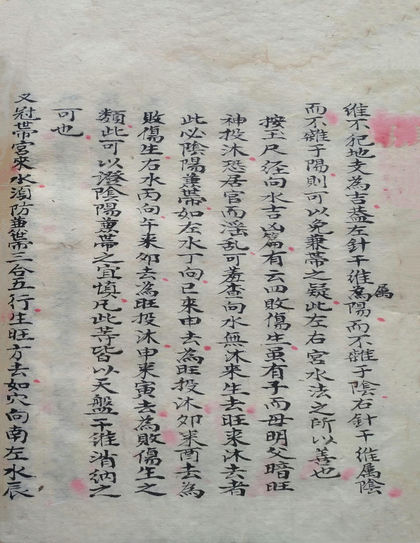 維不犯地支為吉葢左針干維屬陽而不離于陰右針干維属陰
而不離于陽則可以免兼帶之疑此左右宮水法之所以善也
按玉尺逕向水吉凶篇有云四敗傷生虽有子而母明父暗旺
神投沐恐居官而淫乱可羞查向水無沐来生去旺来沐去者
此必陰陽兼帶如左水丁向巳来申去為旺投沐夘来酉去為
敗傷生右水丙向午来夘去為旺投沐申来寅去為敗傷生之
類此可以證陰陽兼帶之宜慎凡此等皆以天盤干維消納之
可也
又冠帶宮來水須防兼帶三合五行生旺方去如穴向南左水辰